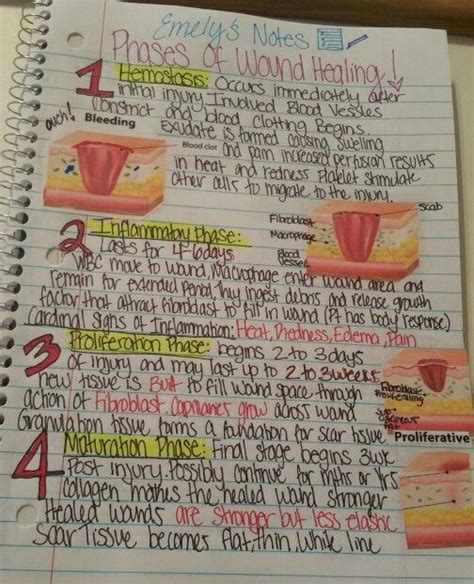 Emely's Notes
Phases Of Wound Healing!
1 Hemostasis: Occurs immediately after
initial injury. Involved Blood Vessles
Constrict and blood clotting Begins.
ouch! Bleeding
Exudate is formed causing Swelling
Blood clot
and Pain increased perfusion results
in heat and redness Platelet stimulate
other cells to migrate to the injury.
Scab
Fibroblast
Macrophage
Blood
Vessel
2 Inflammatory Phase:
Lasts for 4-6days
WBC move to wound, Macrophage enter wound area and
remain for extended period, they ingest debris and release growth
factor that attract fibroblast to fill in wound (Pt has body response)
Cardinal Signs of Inflammation: Heat, Redness, Edema, Pain
3 Proliferation Phase: begins 2 to 3 days
of injury and may last up to 2 to 3 weeks
new tissue is Built to fill wound space through
action of Fibroblast. Capilaries grow across wound
Granulation tissue forms a foundation for scar tissue
Fibroblast
Proliferating
Proliferative
4 Maturation Phase: Final stage begins 3wk
Post injury. Possibly continue for mths or yrs
Collagen makes the healed wound stronger
Healed wounds are stronger but less elastic
Scar Tissue becomes flat, thin, white line